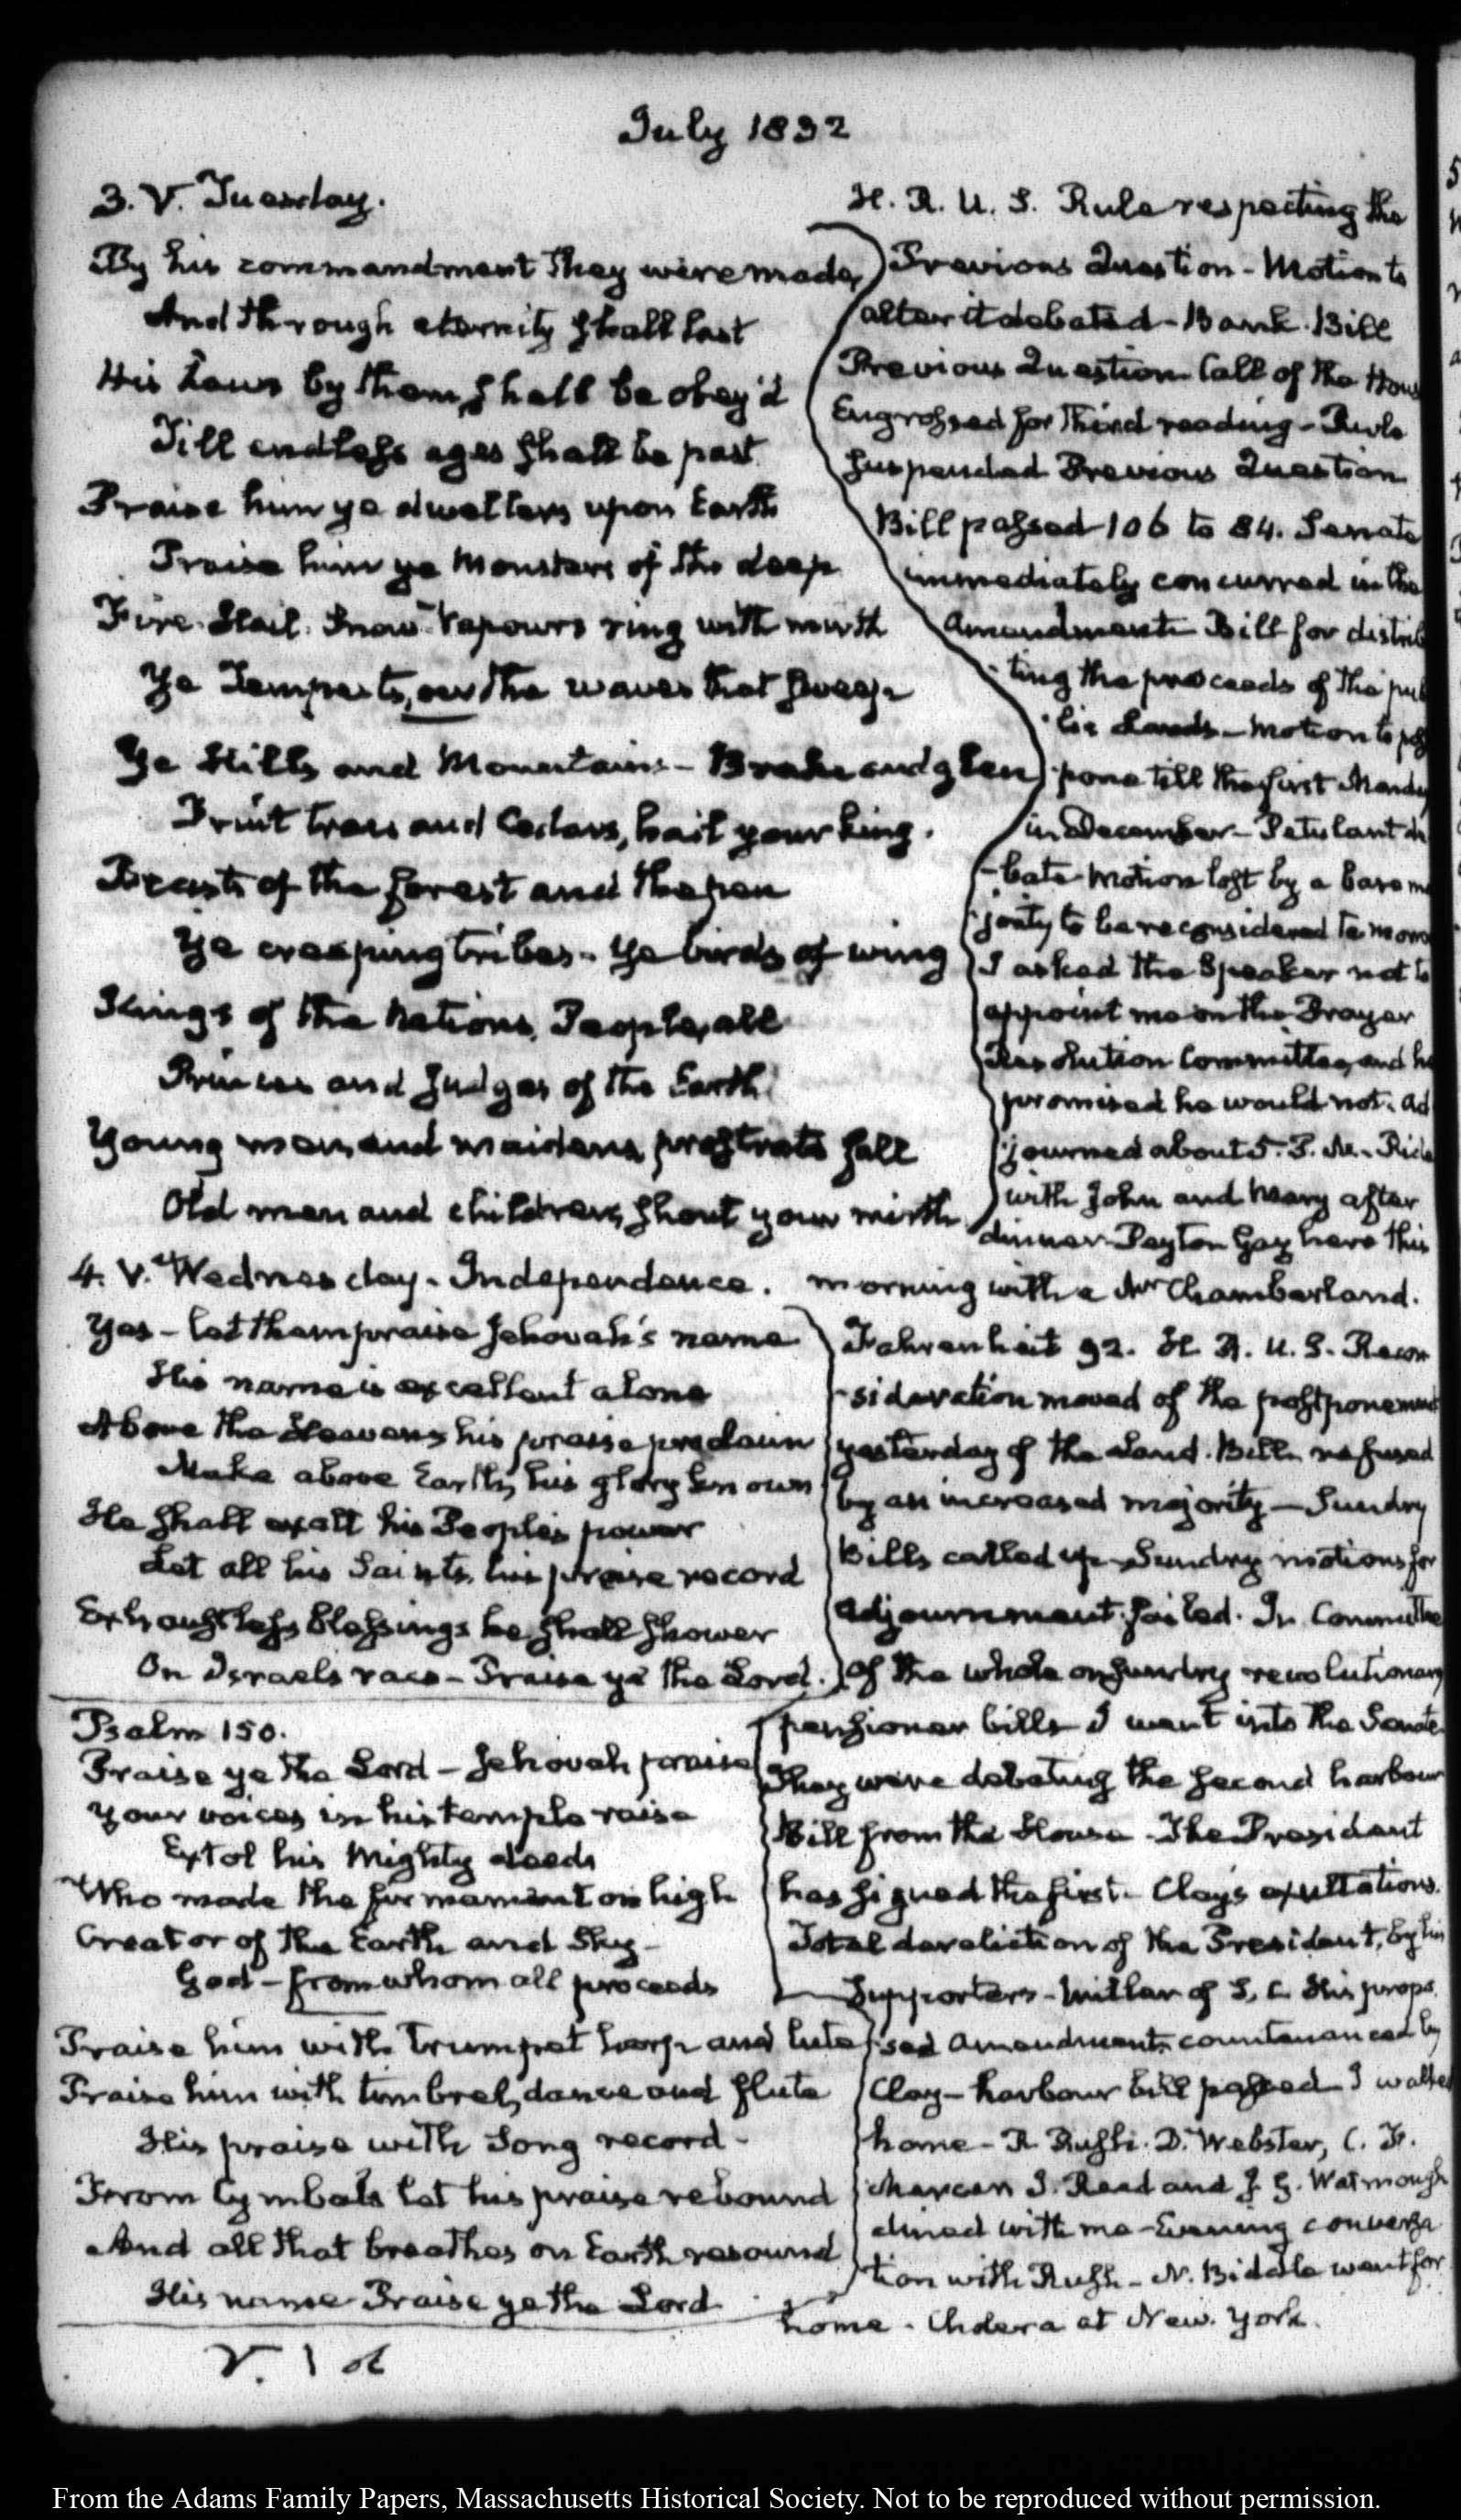 July 1832
3. V. Tuesday.
By his commandment they were made,
And through eternity shall last
His Laws by them, shall be obey'd
Till endless ages shall be past.
Praise him ye dwellers upon Earth
Praise him ye Monsters of the deep
Fire. Hail. Snow. Vapours ring with mirth
Ye Tempests, our the waves that sweep
Ye Hills and Mountains - Brake and glen
Fruit trees and Cedars, hail your king.
Beasts of the forest and the pen
Ye creeping tribes - Ye birds of wing
Kings of the Nations, People, all
Princes and Judges of the Earth
Young men and maidens, prostrate fall
Old men and children, shout your mirth
H. R. U. S. Rule respecting the
Previous Question - Motion to
alter it debated - Bank Bill
Previous Question Call of the Hous
Engrossed for third reading - Rule
suspended Previous Question
Bill passed 106 to 84. Senate
immediately concurred in the
Amendments Bill for distrib
ting the proceeds of the pub
lic Lands - Motion to
pone till the first Monday
in December - Petulant de
-bate Motion lost by a bare m
jority to be reconsidered to morro
I asked the Speaker not to
appoint me on the Prayer
Resolution Committee, and he
promised he would not. Ad
journed about 5. P. M. - Ride
with John and Mary after
dinner. Payton Gay here this
morning with a Mr Chamberland.
4. V. Wednesday. Independence.
Yes - let them praise Jehovah's name
His name is excellent alone
Above the Heavens his praise proclaim
Make above Earth, his glory known
He shall exalt his People's power
Let all his Saints, his praise record
Exhaustless blessings he shall shower
On Israels race - Praise ye the Lord.
Psalm 150.
Praise ye the Lord - Jehovah praise
Your voices in his temple raise
Extol his Mighty deeds
Who made the firmament on high
Creator of the Earth and Sky -
God - from whom all proceeds
Praise him with trumpet harp and lute
Praise him with timbrel, dance and flute
His praise with Song record -
From Cymbals let his praise rebound
And all that breathes on Earth resound
His name Praise ye the Lord
Fahrenheit 92. H. R. U. S. Recon
-sideration moved of the postponement
yesterday of the Land. Bill. refused
by an increased majority - Sundry
Bills called up - Sundry motions for
adjournment failed. In Committee
of the whole on sundry revolutionary
pensioner bills I went into the Senate
They were debating the second harbour
Bill from the House - The President
has signed the first - Clay's exultations.
Total dereliction of the President, by his
Supporters - Miller of S. C. His propo
sed Amendments countenanced by
Clay - harbour bill passed I walked
home - R. Rush. D. Webster, C. F.
Mercer J. Reed and J. G. Watmough
dined with me - Evening conversa
tion with Rush - N. Biddle went for
home. Cholera at New York.
V. 1
From the Adams Family Papers, Massachusetts Historical Society. Not to be reproduced without permission.